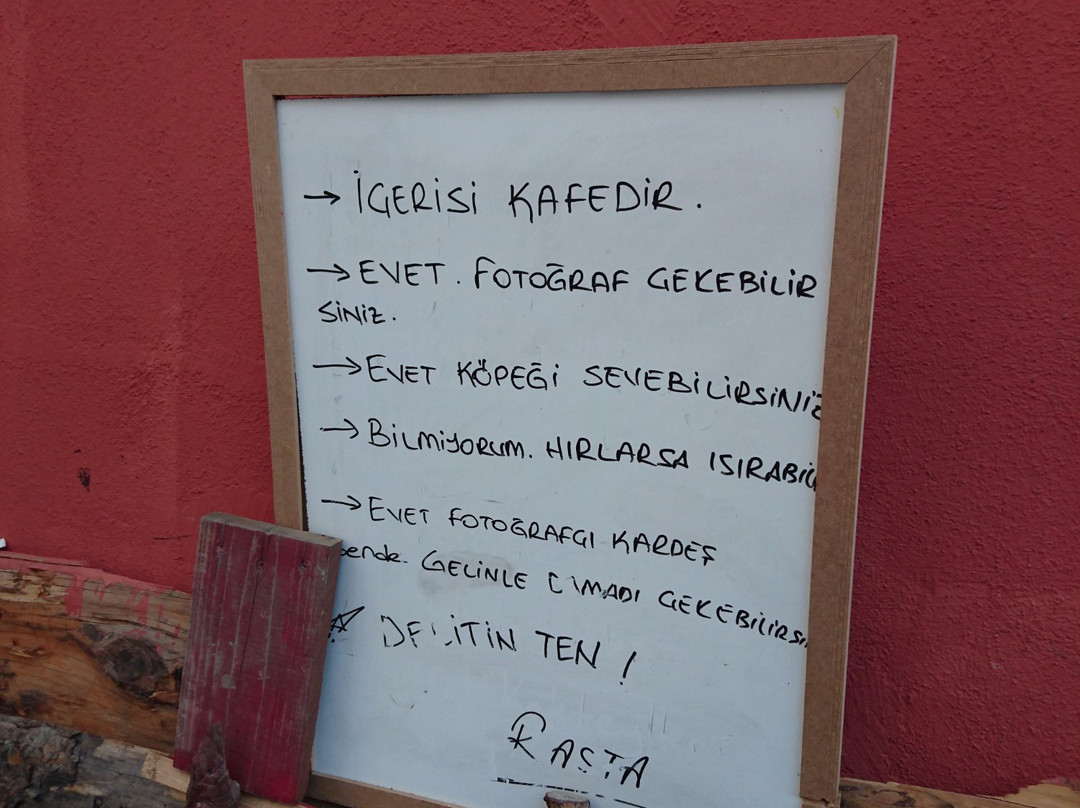 → İÇERİSİ KAFEDİR.
→ EVET. FOTOĞRAF ÇEKEBİLİR
SİNİZ.
→ EVET KÖPEĞİ SEVEBİLİRSİNİZ
→ BİLMİYORUM. HIRLARSA ISIRABİL
→ EVET FOTOĞRAFÇI KARDEŞ
sende. GELİNLE DAMADI ÇEKEBİLİRSİ
DELİTİN TEN!
RASTA